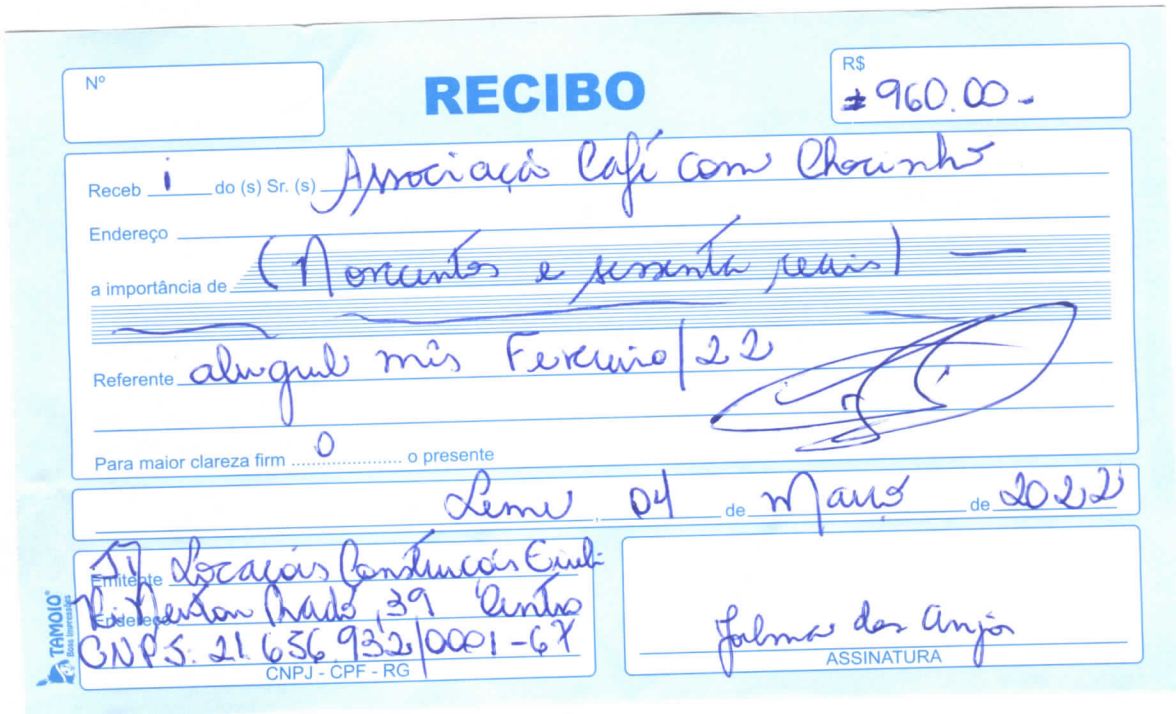 Nº
RECIBO
R$
# 960.00 -
Receb i do (s) Sr. (s) Associação Café com Chorinho
Endereço
a importância de (Novecentos e sessenta reais) —
Referente aluguel mês Fevereiro/22
Para maior clareza firm o o presente
Leme, 04 de Março de 2022
Emitente Locações Construções Civil
Endereço R. Newton Prado, 39 Centro
CNPJ. 21.656.932/0001-67
CNPJ - CPF - RG
dos Anjos
ASSINATURA
TAMOIO